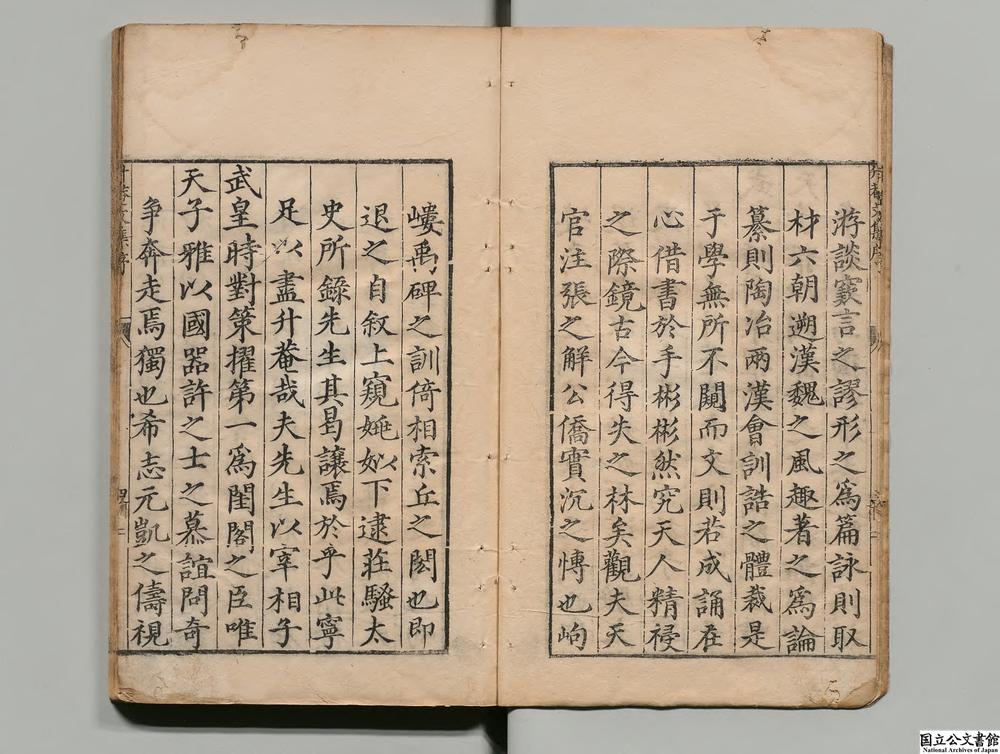 游談窽言之謬形之爲篇詠則取
材六朝遡漢魏之風趣著之爲論
纂則陶冶兩漢會訓誥之體裁是
于學無所不闚而文則若成誦在
心借書於手彬彬然究天人精祲
之際鏡古今得失之林矣觀夫天
官注張之解公僑實沉之愽也岣
嶁禹碑之訓倚相索丘之閎也即
退之自叙上窺姚姒下逮莊騷太
史所錄先生其曷讓焉於乎此寧
足以盡升菴哉夫先生以宰相子
武皇時對策擢第一爲閨閣之臣唯
天子雅以國器許之士之慕誼問奇
争奔走焉獨也希志元凱之儔視
国立公文書館
National Archives of Japan